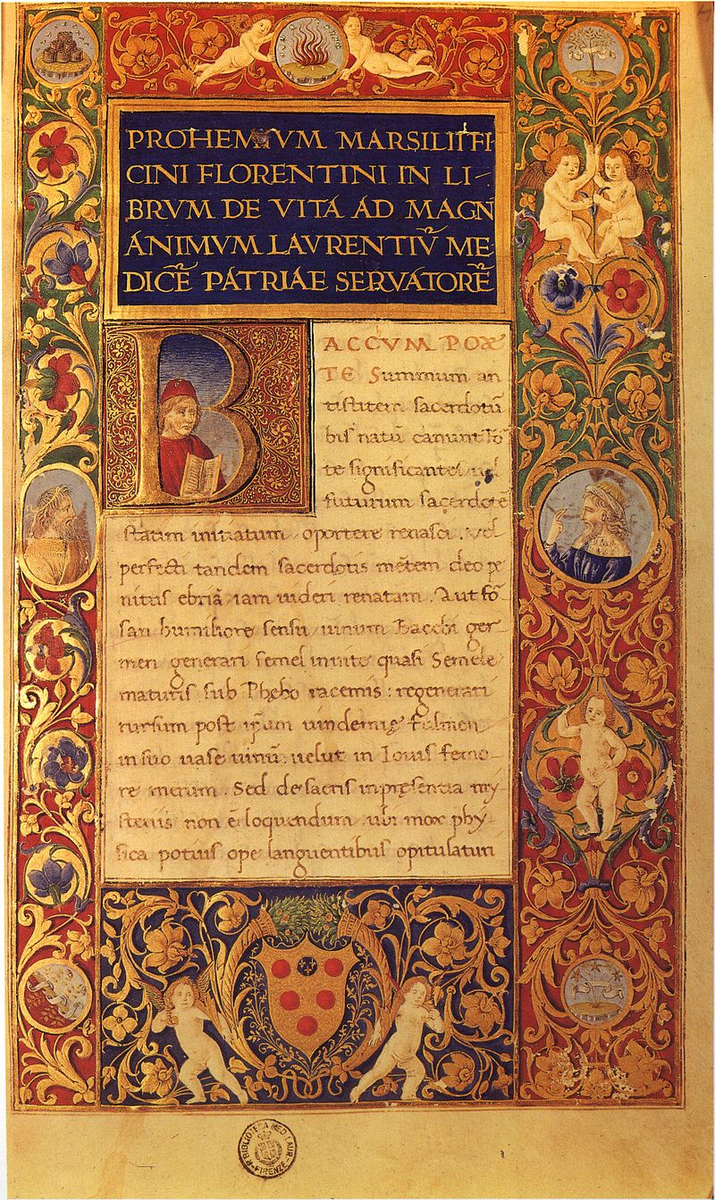 PROHEMIVM MARSILII FI
CINI FLORENTINI IN LI-
BRVM DE VITA AD MAGN
ANIMVM LAVRENTIV̄ ME
DICĒ PATRIAE SERVATORĒ
BACCVM POE
TE Summum an
tistitem sacerdotū
bis natū canunt fo
te significantes vel
futurum sacerdotē
statim initiatum oportere renasci. vel
perfecti tandem sacerdotis mētem deo pe
nitus ebriā iam uideri renatam. Aut fō
san humiliore sensu uinum Bacchi ger
men generari semel in uite quasi Semele
maturis sub Phębo racemis: regenerari
rursum post ip̄um uindemię fulmen
in suo uase uinū: uelut in Iouis femo
re merum. Sed de sacris in pręsentia my
steriis non ē loquendum ubi mox phy
sica potius ope languentibus opitulaturi
BIBLIOTECA MED. LAUR.
FIRENZE